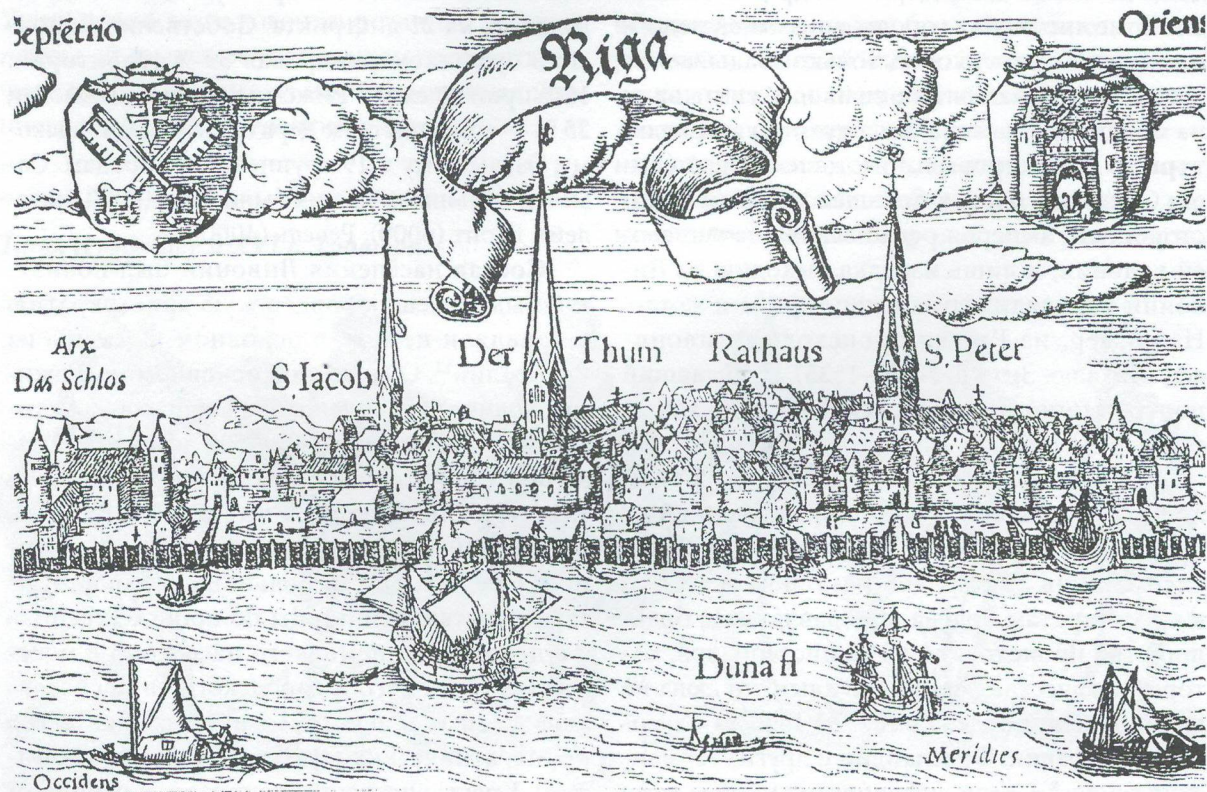 Septētrio
Riga
Oriens
Arx
Das Schlos
S. Iacob
Der Thum
Rathaus
S. Peter
Duna fl
Meridies
Occidens